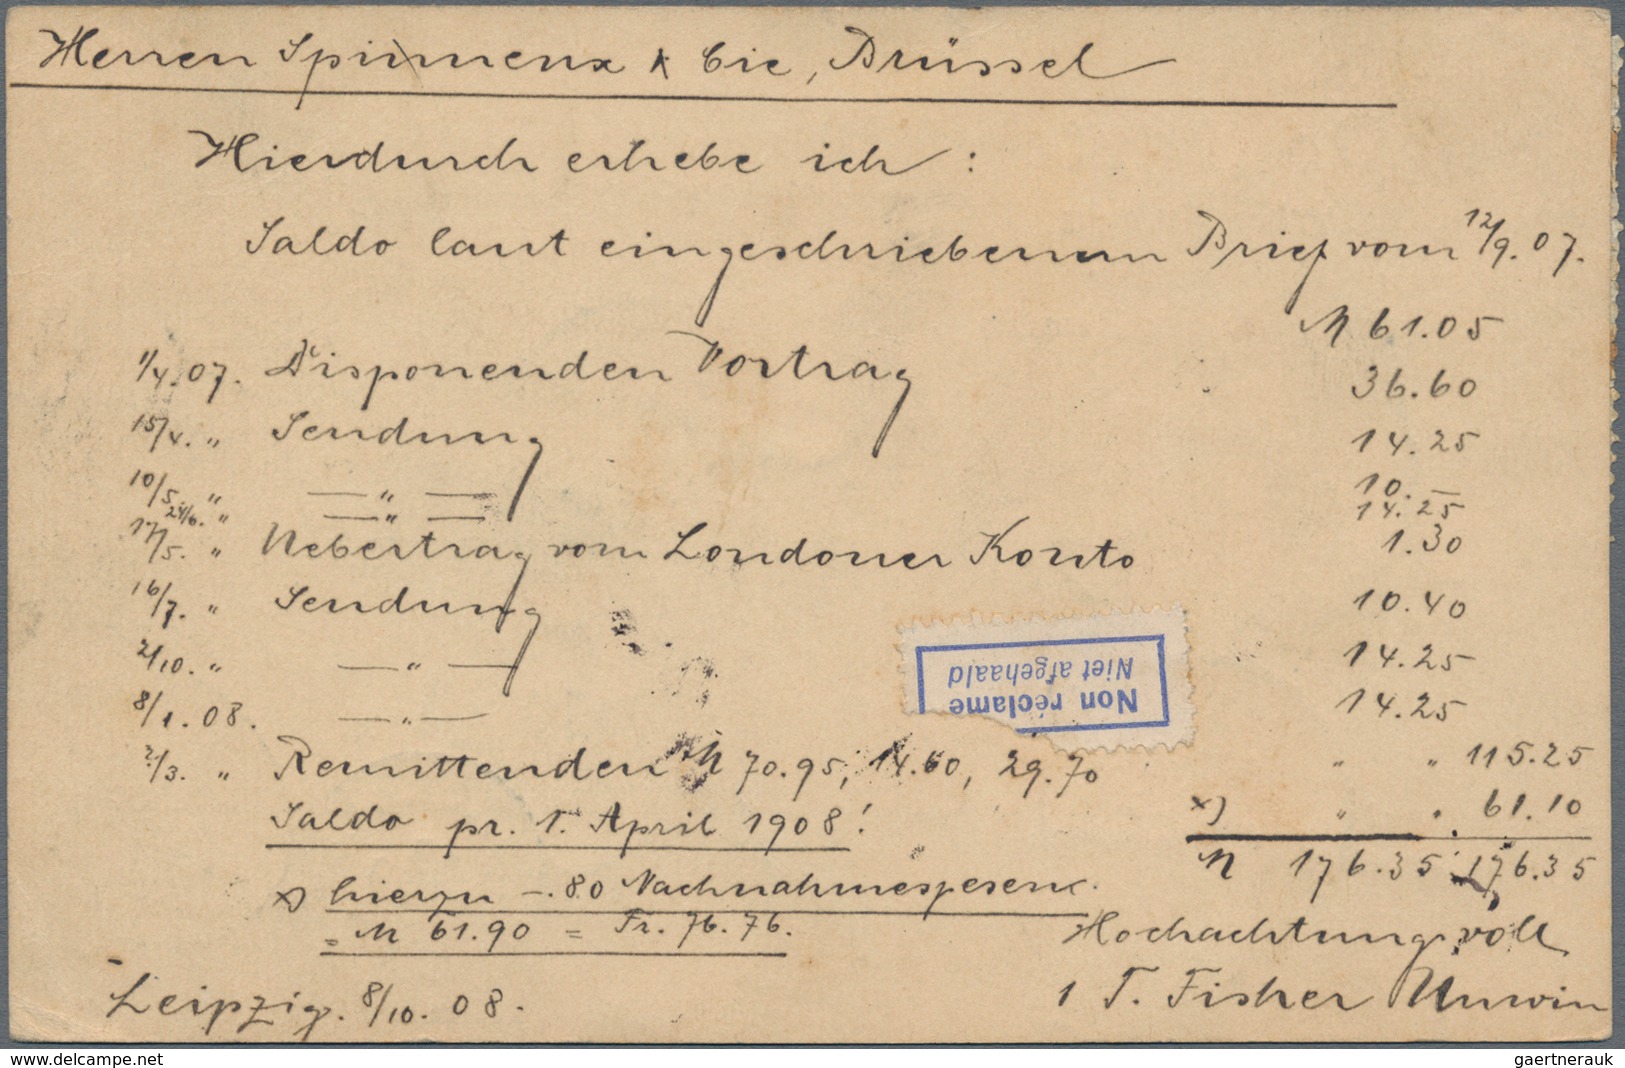 Herren Spineux & Cie, Brüssel
Hierdurch erhebe ich :
Saldo laut eingeschriebenem Brief vom 12/9. 07.
M 61.05
1/4. 07. Disponenden Vortrag 36.60
15/4. " Sendung 14.25
10/5. " — " — 10.—
24/6. " — " — 14.25
17/5. " Uebertrag vom Londoner Konto 1.30
16/7. " Sendung 10.40
2/10. " — " — 14.25
8/1. 08. — " — 14.25
2/3. " Remittenden M 70.95, 14.60, 29.70 " " 115.25
Saldo pr. 1. April 1908! x) " " 61.10
M 176.35 176.35
x) hierzu -.80 Nachnahmespesen
= M 61.90 = Fr. 76.76.
Hochachtungsvoll
Leipzig. 8/10. 08.
T. Fisher Unwin
Non réclamé
Niet afgehaald
delcampe.net
gaertnerauk